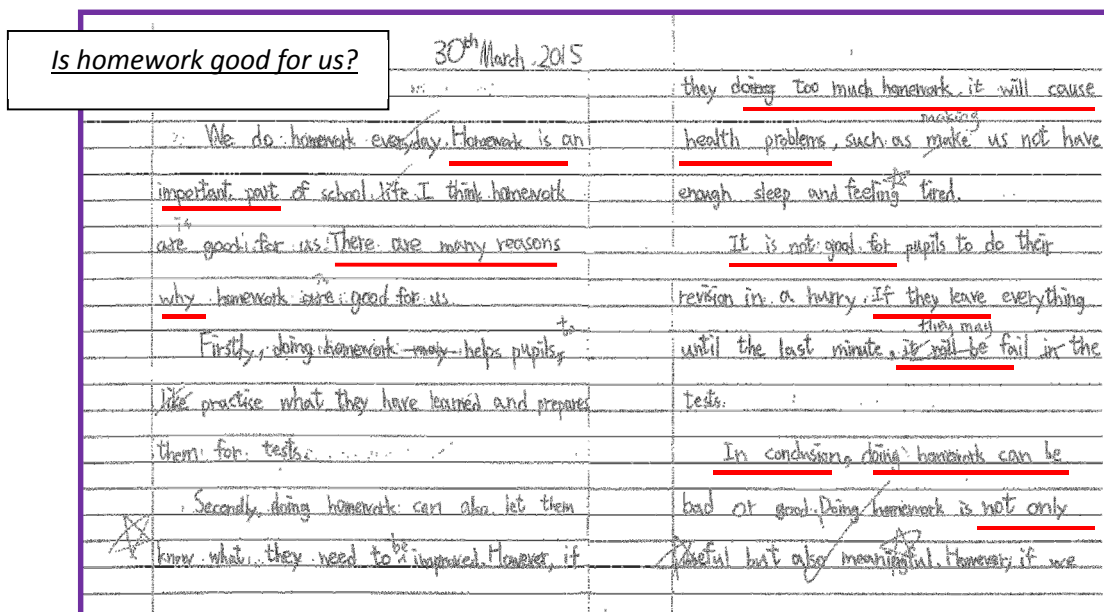 Is homework good for us?
30th March, 2015
We do homework everyday. Homework is an
important part of school life. I think homework
is
are good for us. There are many reasons
why homework are good for us.
to
Firstly, doing homework may helps pupils,
like practise what they have learned and prepares
them for tests.
Secondly, doing homework can also let them
be
know what they need to improved. However, if
they doing too much homework, it will cause
making
health problems, such as make us not have
enough sleep and feeling tired.
It is not good for pupils to do their
revision in a hurry. If they leave everything
they may
until the last minute, it will be fail in the
tests.
In conclusion, doing homework can be
bad or good. Doing homework is not only
useful but also meaningful. However, if we